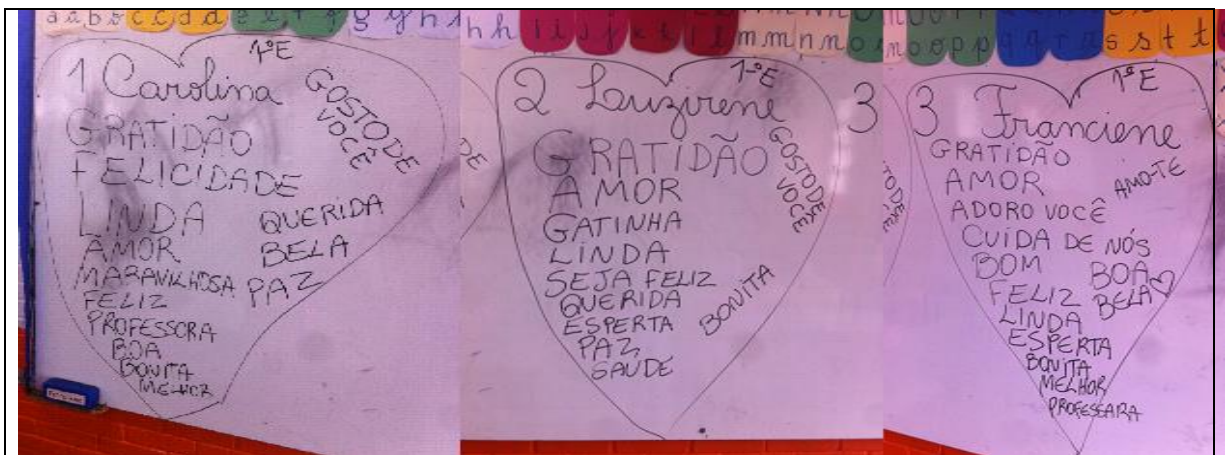 a a b b c c d d e e f f g g h h
1ºE
1 Carolina
GOSTO DE
VOCÊ
GRATIDÃO
FELICIDADE
LINDA
QUERIDA
AMOR
BELA
MARAVILHOSA
PAZ
FELIZ
PROFESSORA
BOA
BONITA
MELHOR
h h i i j j k k l l m m n n o
1ºE
2 Luzirene
3
DE
GRATIDÃO
GOSTO DE
VOCÊ
AMOR
GATINHA
LINDA
SEJA FELIZ
QUERIDA
BONITA
ESPERTA
PAZ
SAÚDE
n o o p p q q r r s s t t
1ºE
3 Franciene
GRATIDÃO
AMO-TE
AMOR
ADORO VOCÊ
CUIDA DE NÓS
BOM
BOA
FELIZ
BELA
LINDA
ESPERTA
BONITA
MELHOR
PROFESSARA